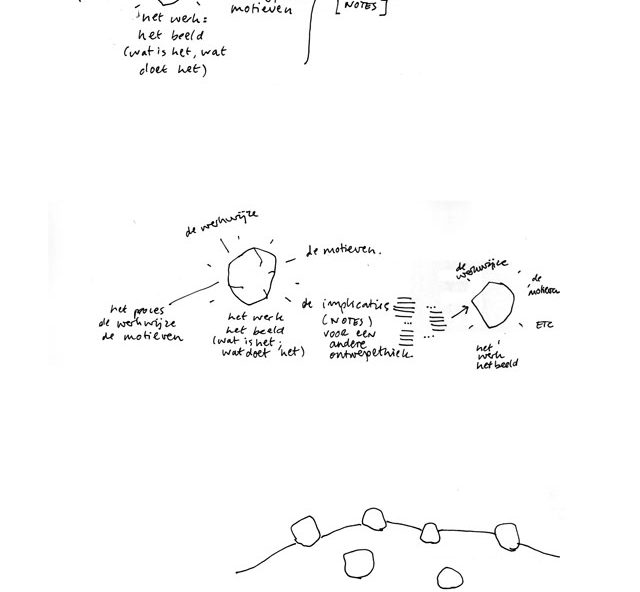 het werk:
het beeld
(wat is het, wat
doet het)
motieven
[NOTES]
de werkwijze
de motieven.
het proces
de werkwijze
de motieven
het werk
het beeld
(wat is het;
wat doet het)
de implicaties
(NOTES)
voor een
andere
ontwerpethiek
de
werkwijze
de
motieven
ETC
het
werk
het beeld